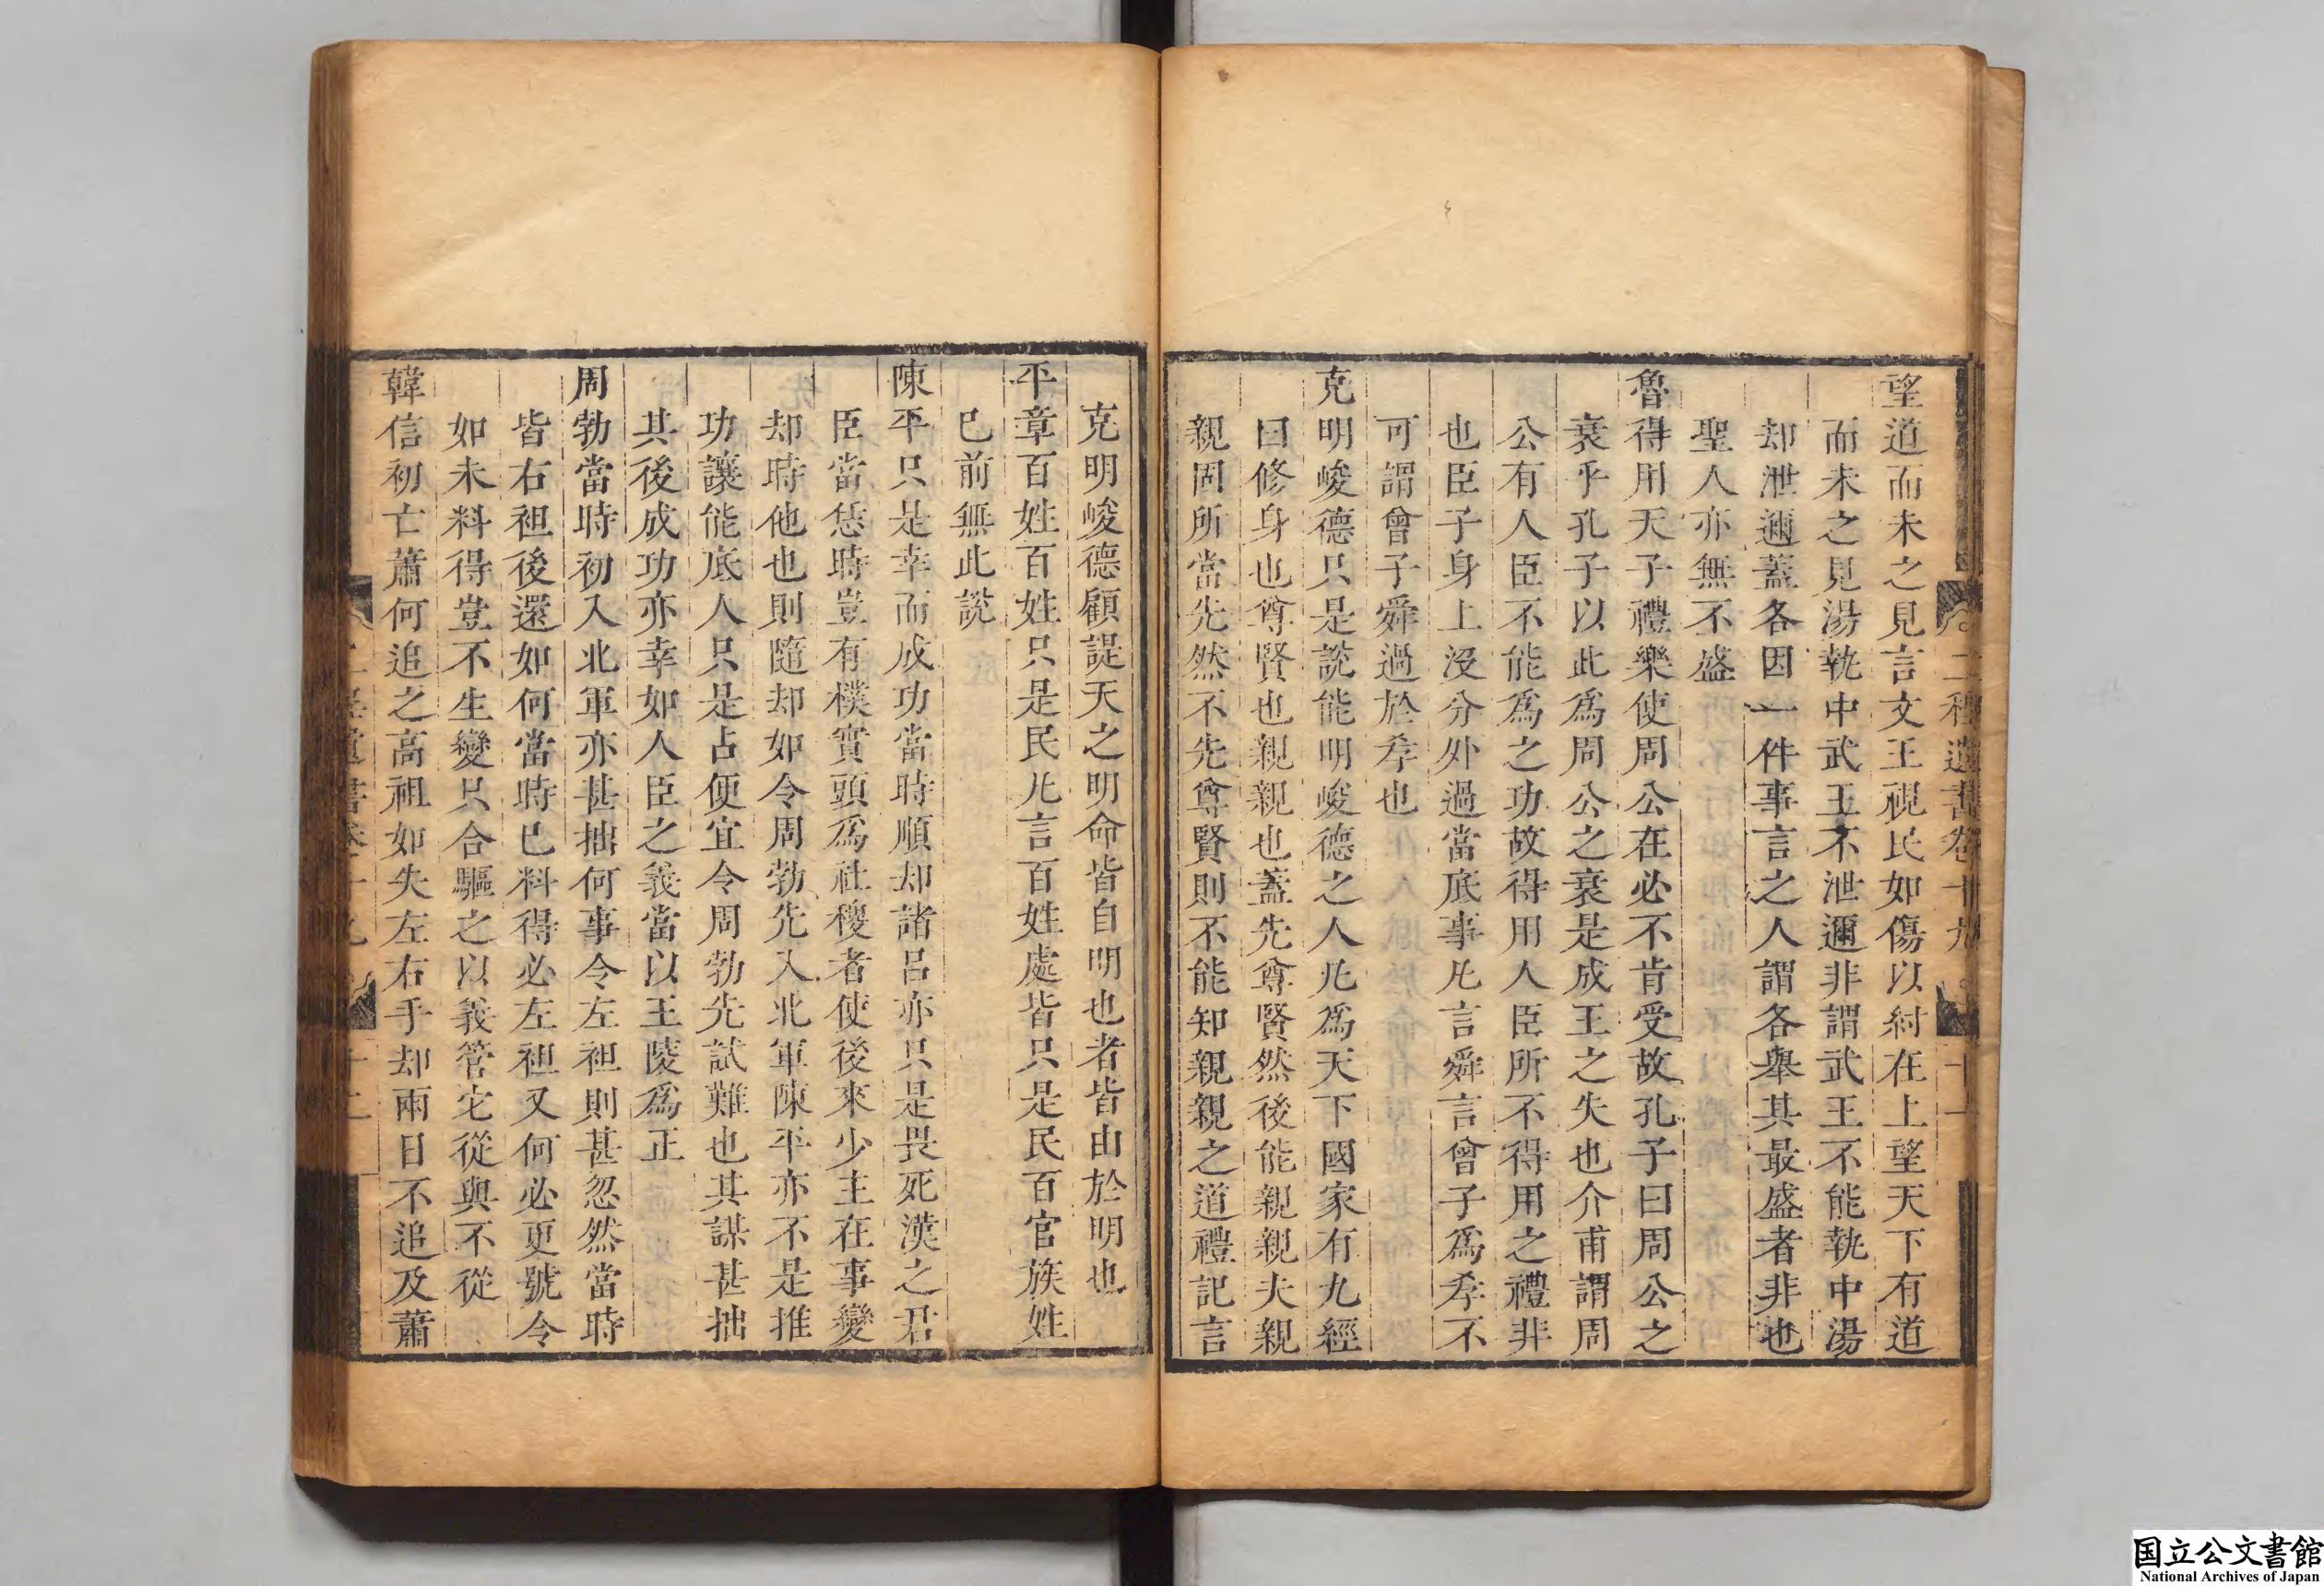 二程遺書卷十九
十一
望道而未之見言文王視民如傷以紂在上望天下有道
而未之見湯執中武王不泄邇非謂武王不能執中湯
却泄邇蓋各因一件事言之人謂各舉其最盛者非也
聖人亦無不盛
魯得用天子禮樂使周公在必不肯受故孔子曰周公之
衰乎孔子以此為周公之衰是成王之失也介甫謂周
公有人臣不能為之功故得用人臣所不得用之禮非
也臣子身上沒分外過當底事凡言舜言曾子為孝不
可謂曾子舜過於孝也
克明峻德只是說能明峻德之人凡為天下國家有九經
曰修身也尊賢也親親也蓋先尊賢然後能親親夫親
親固所當先然不先尊賢則不能知親親之道禮記言
克明峻德顧諟天之明命皆自明也者皆由於明也
平章百姓百姓只是民凡言百姓處皆只是民百官族姓
已前無此說
陳平只是幸而成功當時順却諸呂亦只是畏死漢之君
臣當恁時豈有樸實頭為社稷者使後來少主在事變
却時他也則隨却如令周勃先入北軍陳平亦不是推
功讓能底人只是占便宜令周勃先試難也其謀甚拙
其後成功亦幸如人臣之義當以王陵為正
周勃當時初入北軍亦甚拙何事令左袒則甚忽然當時
皆右袒後還如何當時已料得必左袒又何必更號令
如未料得豈不生變只合驅之以義管它從與不從
韓信初亡蕭何追之高祖如失左右手却兩日不追及蕭
二程遺書卷十九
十二
国立公文書館
National Archives of Japan